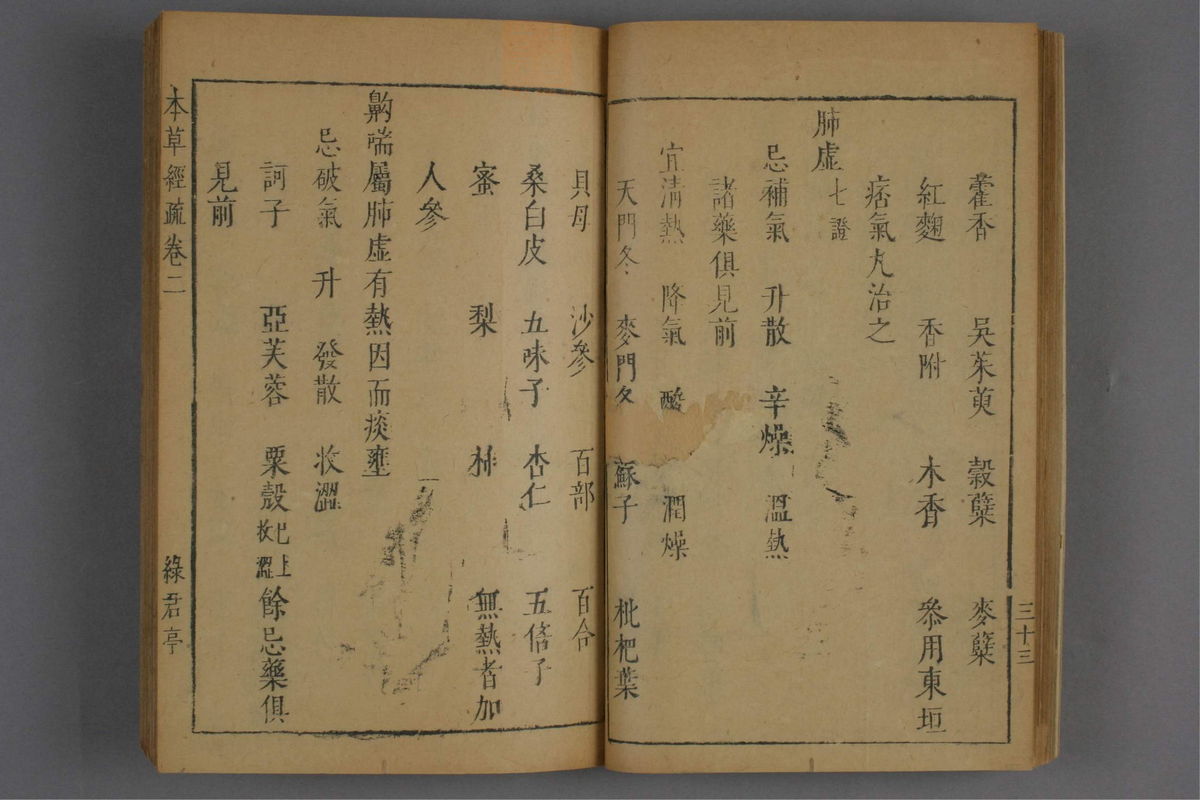 藿香 吳茱萸 穀糱 麥糱
紅麴 香附 木香 叅用東垣
痞氣丸治之
肺虛七證
忌補氣 升散 辛燥 溫熱
諸藥俱見前
宜清熱 降氣 酸 潤燥
天門冬 麥門冬 蘇子 枇杷葉
三十三
貝母 沙參 百部 百合
桑白皮 五味子 杏仁 五倍子
蜜 梨 柹 無熱者加
人參
齁喘屬肺虛有熱因而痰壅
忌破氣 升 發散 收澀
訶子 亞芙蓉 粟殼已上收澀 餘忌藥俱
見前
本草經疏卷二 綠君亭